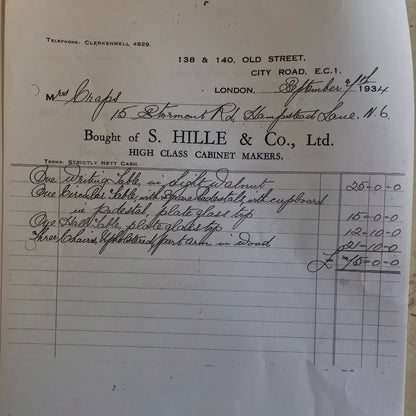 TELEPHONE: CLERKENWELL 4929.
138 & 140, OLD STREET,
CITY ROAD, E.C.1.
LONDON, September 1934
Mrs Chaps
15 Stormont Rd, Hampstead Lane. N.6.
Bought of S. HILLE & Co., Ltd.
HIGH CLASS CABINET MAKERS.
TERMS: STRICTLY NETT CASH.
One Writing Table, in light walnut 25-0-0
One Circular Table, with square pedestals, with cupboard
in pedestal, plate glass top 15-0-0
One Hall Table, plate glass top 12-10-0
Three Chairs, Upholstered, part arm in wood 21-10-0
£